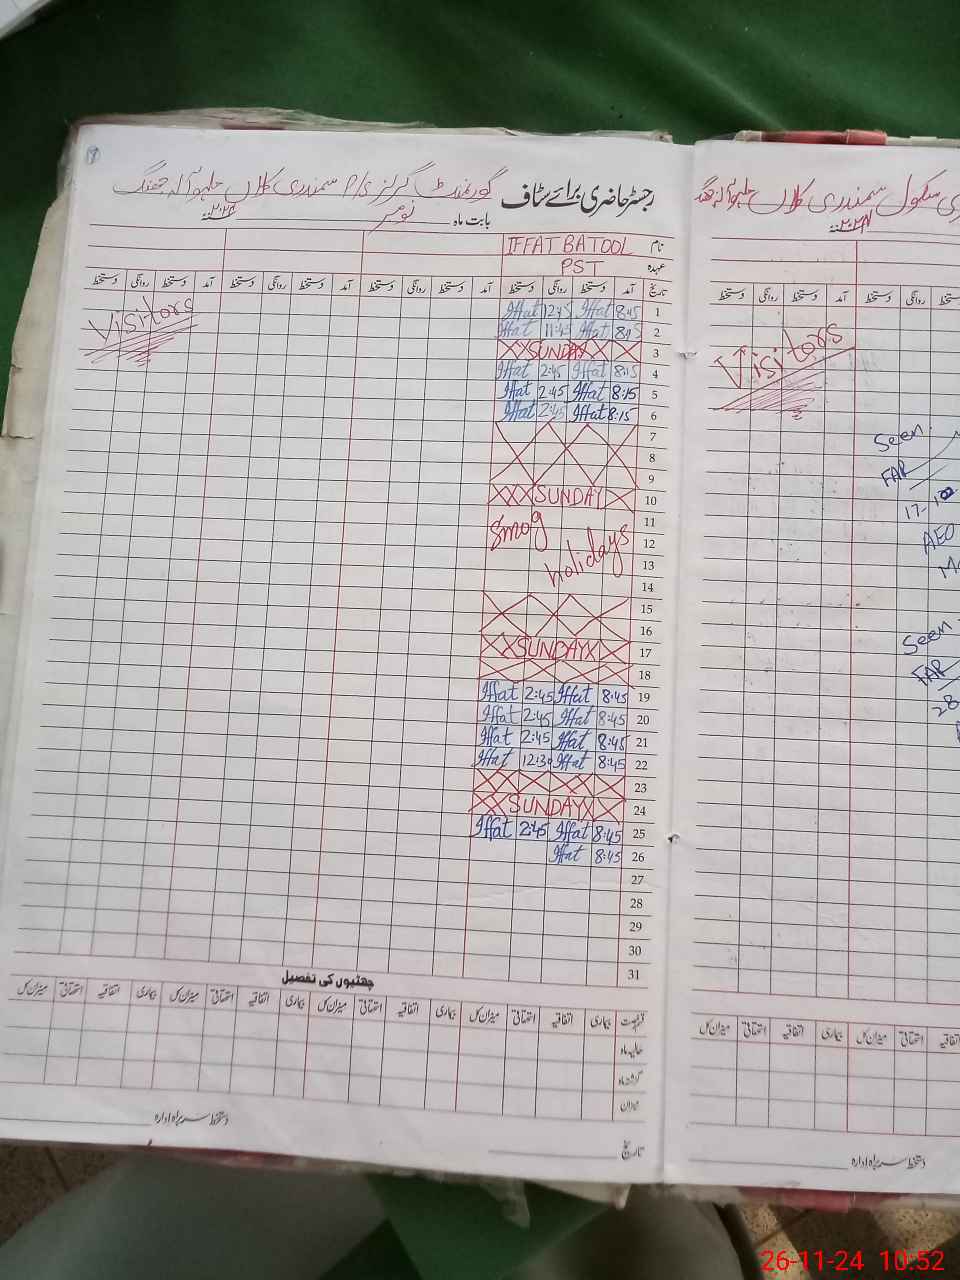 رجسٹر حاضری برائے سٹاف گورنمنٹ گرلز P/S سمندری کلاں جھنگ
بابت ماہ نومبر ۲۰۲۴
نام IFFAT BATOOL
عہدہ PST
تاریخ آمد دستخط روانگی دستخط آمد دستخط روانگی دستخط آمد دستخط روانگی دستخط آمد دستخط روانگی دستخط
Visitors
1 8:45 Iffat 12:45 Iffat
2 8:45 Iffat 11:45 Iffat
3 SUNDAY
4 8:15 Iffat 2:45 Iffat
5 8:15 Iffat 2:45 Iffat
6 8:15 Iffat 2:45 Iffat
7
8
9
10 SUNDAY
11
Smog
12
holidays
13
14
15
16
17 SUNDAY
18
19 8:45 Iffat 2:45 Iffat
20 8:45 Iffat 2:45 Iffat
21 8:45 Iffat 2:45 Iffat
22 8:45 Iffat 12:30 Iffat
23
24 SUNDAY
25 8:45 Iffat 2:45 Iffat
26 8:45 Iffat
27
28
29
30
31
چھٹیوں کی تفصیل
قسم رخصت بیماری اتفاقیہ استحقاقی میزان کل بیماری اتفاقیہ استحقاقی میزان کل بیماری اتفاقیہ استحقاقی میزان کل بیماری اتفاقیہ استحقاقی میزان کل
حالیہ ماہ
گزشتہ ماہ
میزان
دستخط سربراہ ادارہ
تاریخ
سکول سمندری کلاں
۲۰۲۴
دستخط روانگی دستخط آمد دستخط روانگی دستخط
Visitors
Seen
FAR
AEO
Seen
FAR
28
اتفاقیہ استحقاقی میزان کل بیماری اتفاقیہ استحقاقی میزان کل
دستخط سربراہ ادارہ
26-11-24 10:52